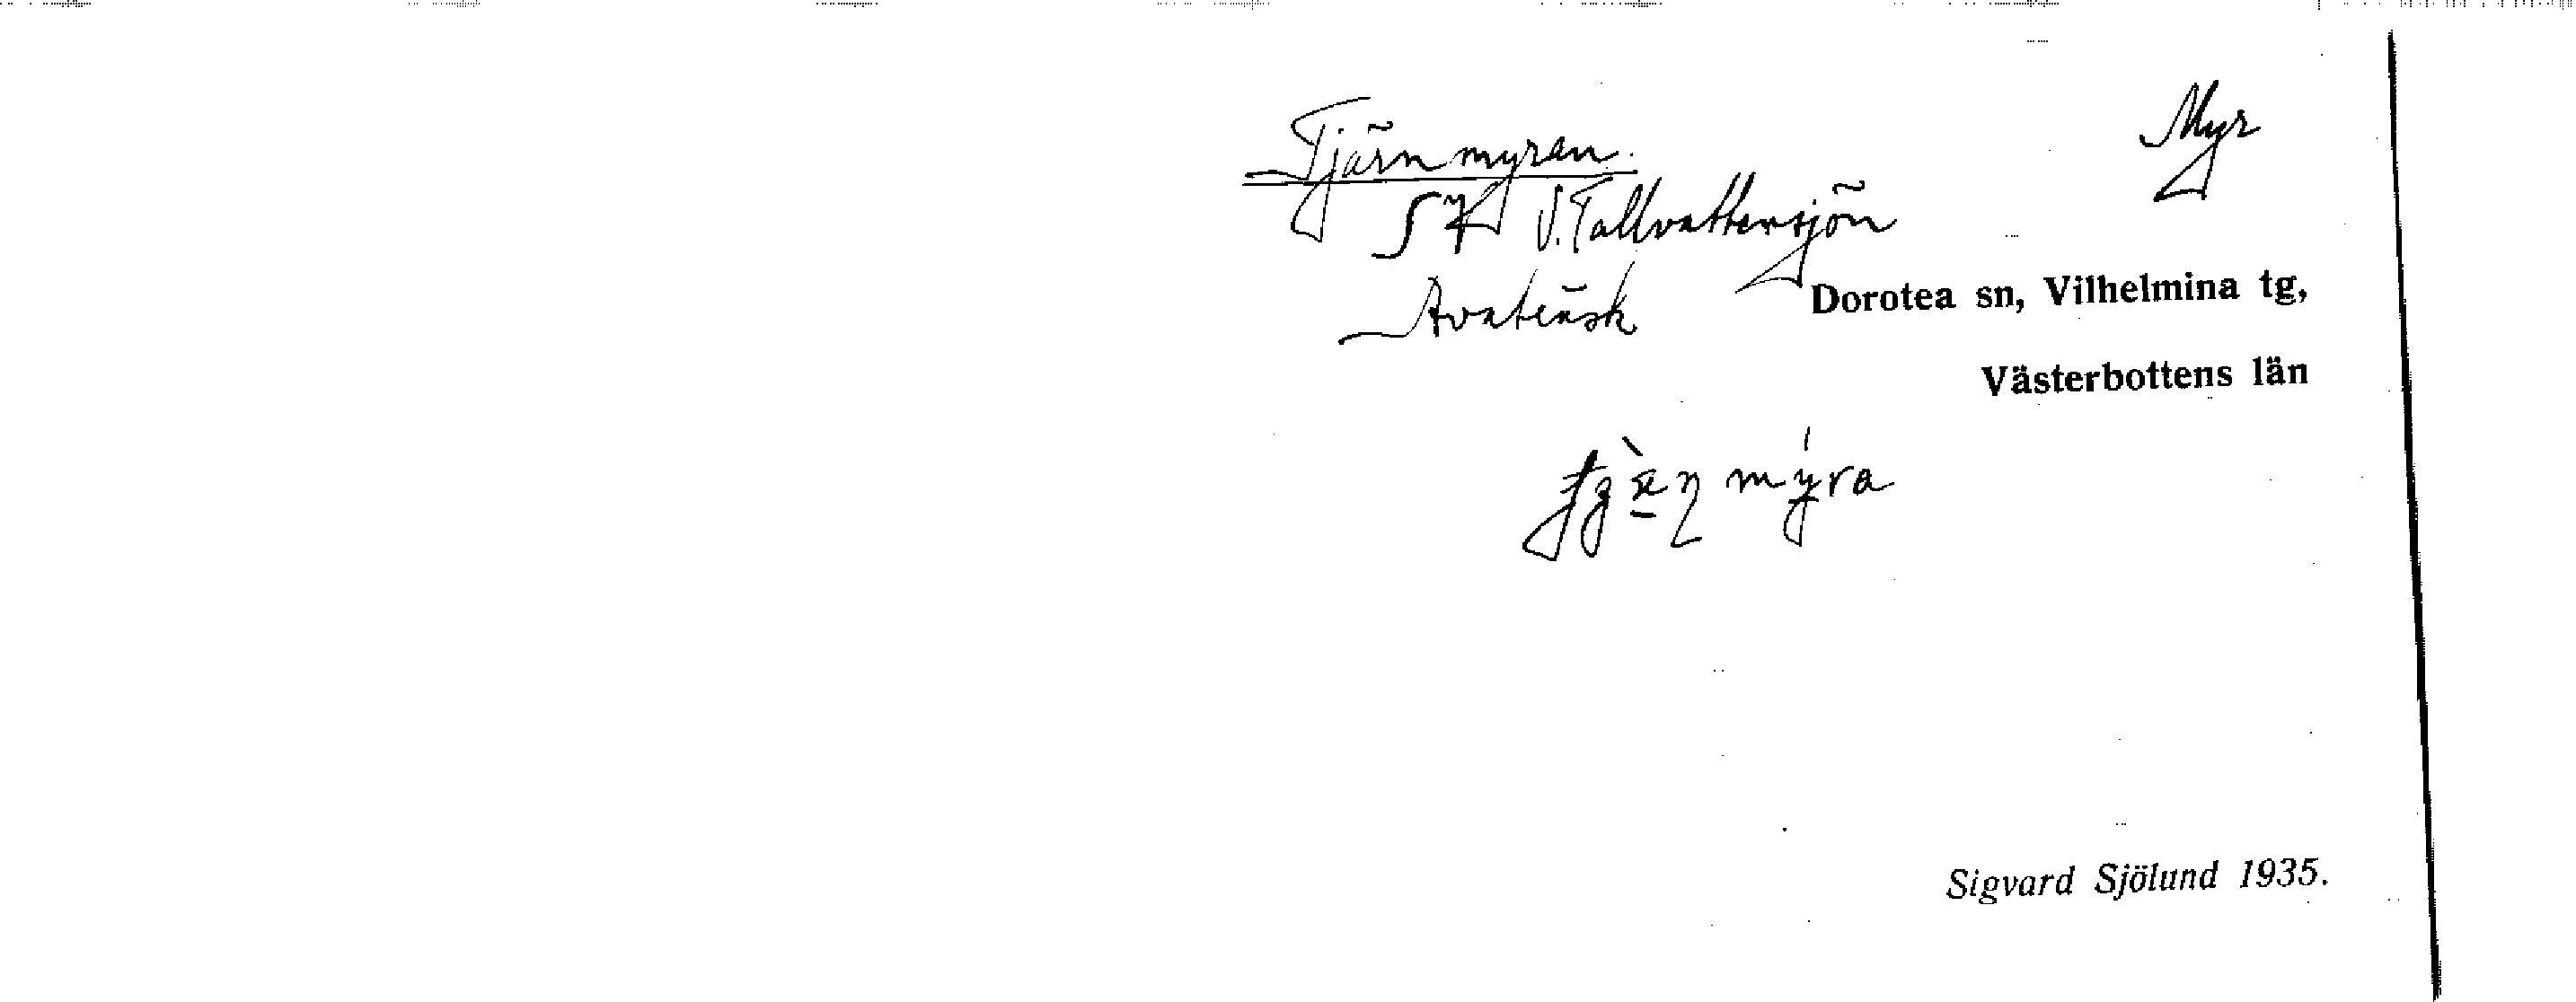 Tjärnmyran.
Myr
S V. Tallvattensjön
Avaträsk
Dorotea sn, Vilhelmina tg,
Västerbottens län
mýra
Sigvard Sjölund 1935.